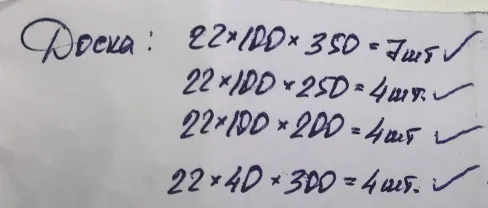 Доска: 22×100×350=7шт ✓
22×100×250=4шт. ✓
22×100×200=4шт. ✓
22×40×300=4шт. ✓